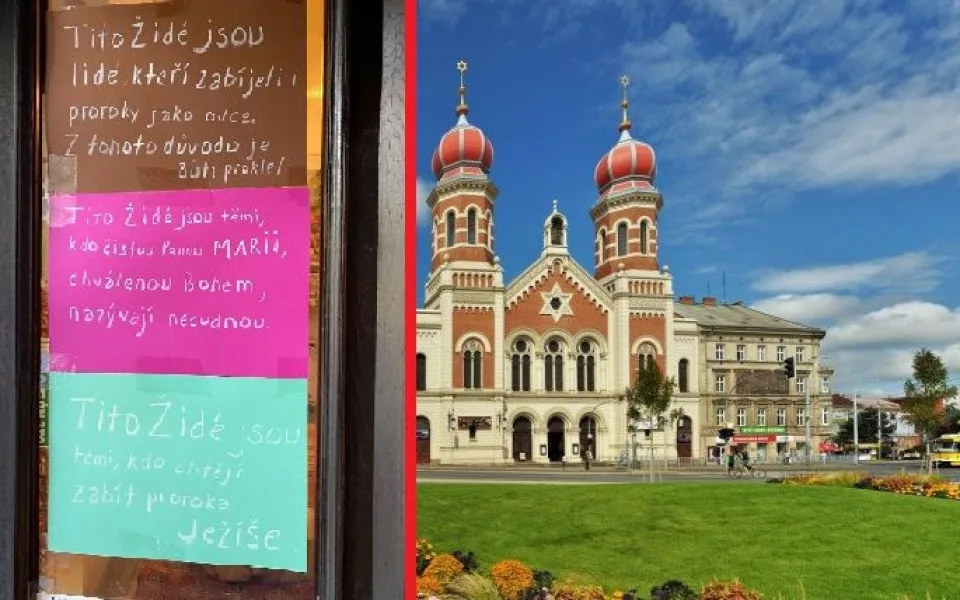 Tito Židé jsou
lidé, kteří zabíjeli
proroky jako ovce.
Z tohoto důvodu je
Bůh proklel
Tito Židé jsou těmi,
kdo čistou Pannu MARII,
chválenou Bohem,
nazývají necudnou.
Tito Židé jsou
těmi, kdo chtějí
zabít proroka
Ježíše.